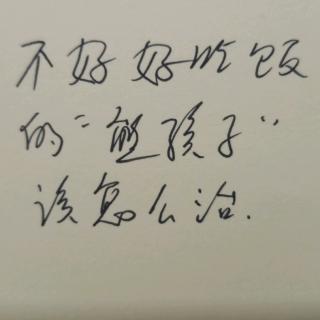 不好好吃饭
的“熊孩子”
该怎么治.